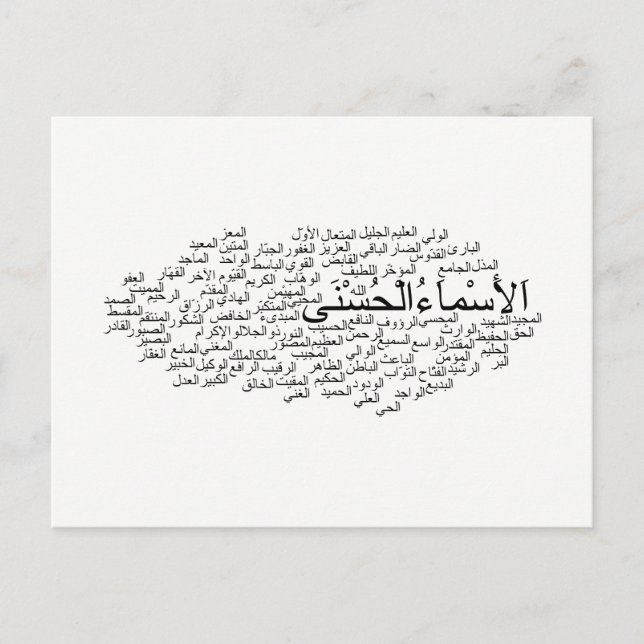 المعز
الولي العليم الجليل المتعال الأوّل
البارئ القدّوس الضار الباقي العزيز الغفور الجبّار المتين المعيد
المذل الجامع المؤخّر اللطيف القابض القوي الباسط الواحد الماجد
الوهّاب الكريم القيّوم الآخر القهّار العفو
الله المحيي المهيْمن المتكبّر الهادي المقدّم الرزّاق الرحيم المميت الصمد
اَلأَسْماَءُ الْحُسْنَى
المجيد الشهيد المحسي الرؤوف النافع المبدىء الخافض الشكور المنتقم المقسط
الحق الحفيظ الوارث الرحمن الحسيب النور ذو الجلال والإكرام الصبور القادر
الحليم المقتدر الواسع السميع العظيم المصوّر المغني المانع البصير
البر المؤمن الباعث الوالي المجيب مالك الملك الخبير الغفّار
الرشيد الفتّاح التوّاب الباطن الظاهر الرقيب الرافع الوكيل
البديع الواجد الودود الحكيم المقيت الخالق الكبير العدل
العلي الحميد الغني
الحي